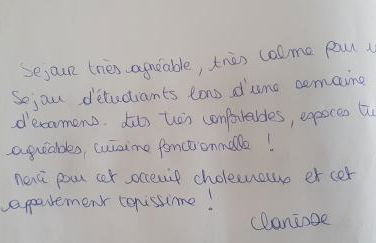 Sejour très agréable, très calme pour u
Sejou d'étudiants lors d'une semaine
d'examens. Lits très confortables, espaces tr
agréables, cuisine fonctionnelle !
Merci pour cet acceuil chaleureux et cet
appartement topissime !
Clarisse